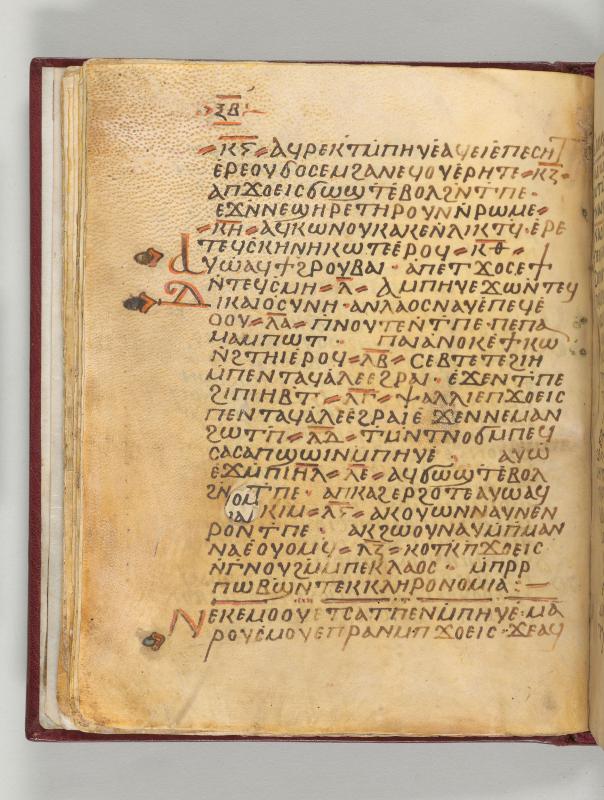 ⲝⲃ
ⲕⲋ ⲁϥⲣⲉⲕⲧⲙⲡⲏⲩⲉⲁϥⲉⲓⲉⲡⲉⲥⲏⲧ
ⲉⲣⲉⲟⲩϭⲟⲥⲉⲙϩⲁⲛⲉϥⲟⲩⲉⲣⲏⲧⲉ ⲕⲍ
ⲁⲡϫⲟⲉⲓⲥϭⲱϣⲧⲉⲃⲟⲗϩⲛⲧⲡⲉ
ⲉϫⲛⲛⲉϣⲏⲣⲉⲧⲏⲣⲟⲩⲛⲛⲣⲱⲙⲉ
ⲕⲏ ⲁϥⲕⲱⲛⲟⲩⲕⲁⲕⲉⲛⲗⲓⲕⲧϥ ⲉⲣⲉ
ⲧⲉϥⲥⲕⲏⲛⲏⲕⲱⲧⲉⲉⲣⲟϥ ⲕⲑ
ⲁⲩⲱⲁϥϯϩⲣⲟⲩⲃⲁⲓ ⲁⲡⲉⲧϫⲟⲥⲉϯ
ⲛⲧⲉϥⲥⲙⲏ ⲗ ⲁⲙⲡⲏⲩⲉϫⲱⲛⲧⲉϥ
ⲇⲓⲕⲁⲓⲟⲥⲩⲛⲏ ⲁⲛⲗⲁⲟⲥⲛⲁⲩⲉⲡⲉϥⲉ
ⲟⲟⲩ ⲗⲁ ⲡⲛⲟⲩⲧⲉⲛⲧⲡⲉ ⲡⲉⲡⲁ
ⲙⲁⲙⲡⲱⲧ ⲡⲁⲓⲁⲛⲟⲕⲉϯⲕⲱ
ⲛϩⲧⲏⲓⲉⲣⲟϥ ⲗⲃ ⲥⲉⲃⲧⲉⲧⲉϩⲓⲏ
ⲙⲡⲉⲛⲧⲁϥⲁⲗⲉⲉϩⲣⲁⲓ ⲉϫⲉⲛⲧⲡⲉ
ϩⲓⲡⲓⲏⲃⲧ ⲗⲅ ⲯⲁⲗⲗⲓⲉⲡϫⲟⲉⲓⲥ
ⲡⲉⲛⲧⲁϥⲁⲗⲉⲉϩⲣⲁⲓⲉϫⲉⲛⲛⲉⲙⲁⲛ
ϩⲱⲧⲡ ⲗⲇ ⲧⲙⲛⲧⲛⲟϭⲙⲡⲉϥ
ⲥⲁⲥⲁⲡϣⲱⲓⲛⲙⲡⲏⲩⲉ ⲁⲩⲱ
ⲉϫⲙⲡⲓⲏⲗ ⲗⲉ ⲁϥϭⲱϣⲧⲉⲃⲟⲗ
ϩⲛⲧⲡⲉ ⲁⲡⲕⲁϩⲉⲣϩⲟⲧⲉⲁⲩⲱⲁϥ
ⲕⲓⲙ ⲗⲋ ⲁⲕⲟⲩⲱⲛⲛⲁⲩⲛⲉⲛ
ⲣⲟⲛⲧⲡⲉ ⲁⲕϩⲱⲟⲩⲛⲁⲩⲙⲡⲙⲁⲛ
ⲛⲁⲉⲟⲩⲟⲙϥ ⲗⲍ ⲕⲟⲧⲕⲡϫⲟⲉⲓⲥ
ⲛⲅⲛⲟⲩϩⲙⲙⲡⲉⲕⲗⲁⲟⲥ ⲙⲡⲣⲣ
ⲡⲱⲃϣⲛⲧⲉⲕⲕⲗⲏⲣⲟⲛⲟⲙⲓⲁ
ⲛⲉⲕⲉⲙⲟⲟⲩⲉⲧⲥⲁⲧⲡⲉⲛⲙⲡⲏⲩⲉ ⲙⲁ
ⲣⲟⲩⲥⲙⲟⲩⲉⲡⲣⲁⲛⲙⲡϫⲟⲉⲓⲥ ϫⲉⲁϥ